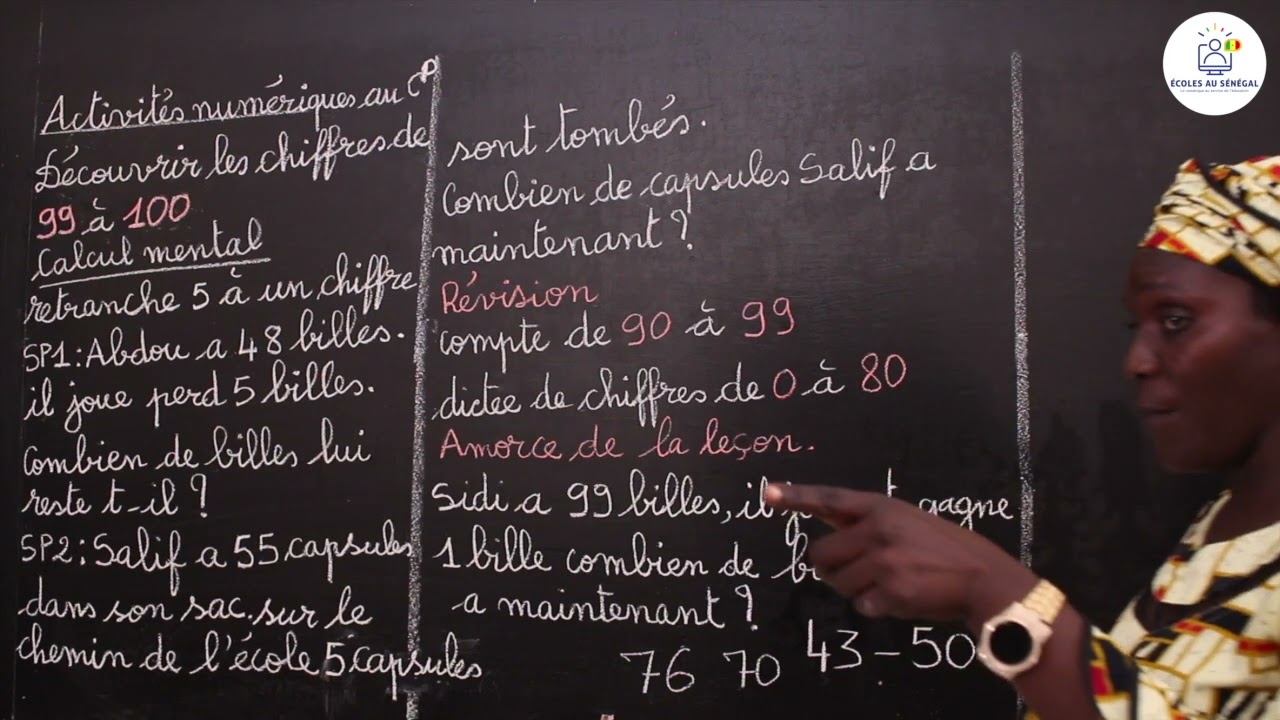 Activités numériques au CP
Découvrir les chiffres de
99 à 100
Calcul mental
retranche 5 à un chiffre
SP1: Abdou a 48 billes.
il joue perd 5 billes.
Combien de billes lui
reste t-il ?
SP2: Salif a 55 capsules
dans son sac. sur le
chemin de l'école 5 capsules
sont tombés.
Combien de capsules Salif a
maintenant ?
Révision
compte de 90 à 99
dictée de chiffres de 0 à 80
Amorce de la leçon.
Sidi a 99 billes, il gagne
1 bille combien de
a maintenant ?
76 70 43 - 50
ÉCOLES AU SÉNÉGAL